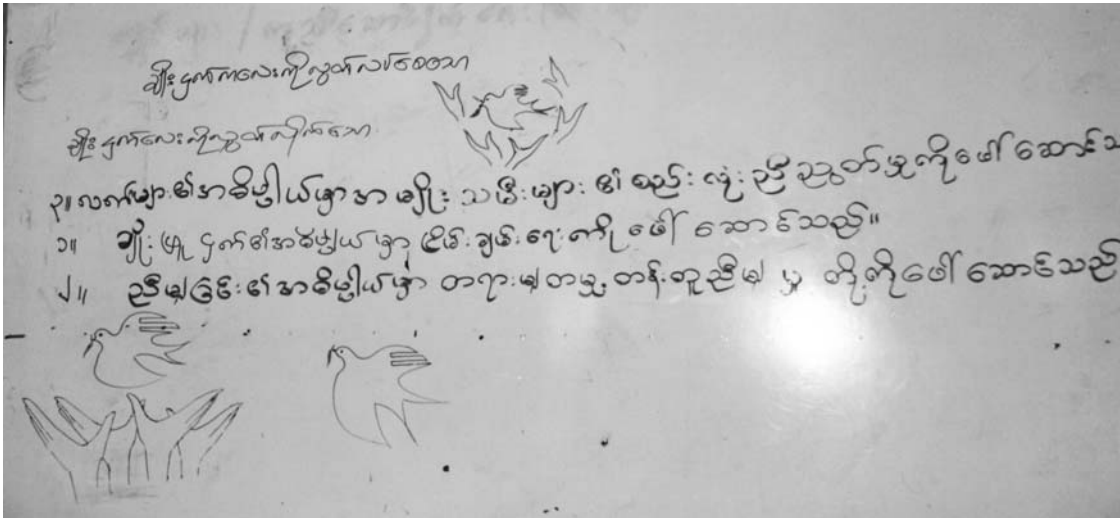 ချိုးငှက်ကလေးကိုလွှတ်လပ်စေသော
ချိုးငှက်လေးကိုလွှတ်လိုက်သော
၃။ လက်များ၏အဓိပ္ပါယ်မှာ အမျိုးသမီးများ၏ စည်းလုံးညီညွတ်မှုကိုဖေါ်ဆောင်သ
၁။ ချိုးဖြူငှက်၏အဓိပ္ပါယ်မှာ ငြိမ်းချမ်းရေးကိုဖေါ်ဆောင်သည်။
၂။ ညီမျှခြင်း၏အဓိပ္ပါယ်မှာ တရားမျှတမှု့ တန်းတူညီမျှမှု တို့ကိုဖေါ်ဆောင်သည်